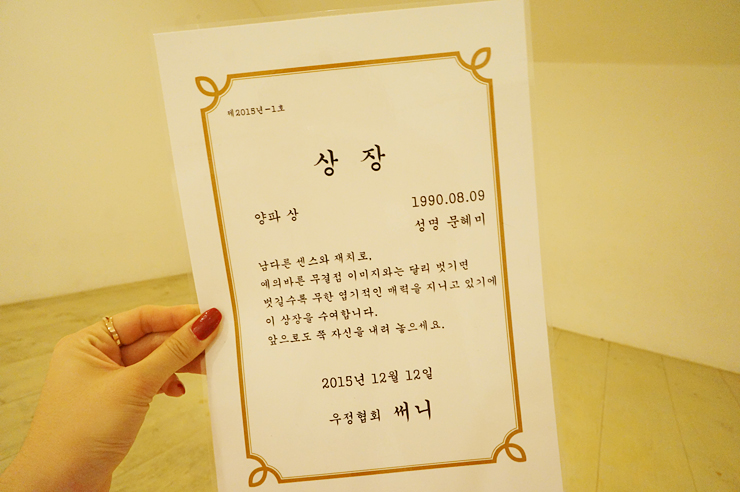 제2015년-1호
상 장
양파 상
1990.08.09
성명 문혜미
남다른 센스와 재치로.
예의바른 무결점 이미지와는 달리 벗기면
벗길수록 무한 엽기적인 매력을 지니고 있기에
이 상장을 수여합니다.
앞으로도 쭉 자신을 내려 놓으세요.
2015년 12월 12일
우정협회 써니